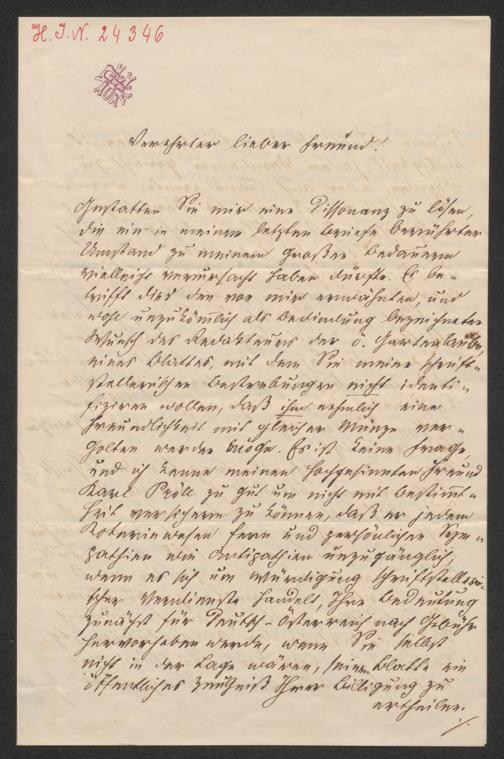 H. I. N. 24346
Verehrter lieber Freund!
Gestatten Sie mir eine Dissonanz zu lösen,
die ein in meinem letzten Briefe berührter
Umstand zu meinem großen Bedauern
vielleicht verursacht haben dürfte. Es be-
trifft dies den von mir erwähnten, und
wohl unzukömlich als Bedindung bezeichneten
Wunsch des Redakteurs der ö. Gartenlaube,
eines Blattes, mit dem Sie meine schrift-
stellerischen Bestrebungen nicht identi-
fiziren wollen, daß ihm nehmlich eine
Freundlichkeit mit gleicher Münze ver-
golten werden möge. Es ist keine Frage,
und ich kenne meinen hochgesinnten Freund
Karl Pröll zu gut um nicht mit Bestimmt-
heit versichern zu können, daß er jedem
Koteriewesen fern und persönlichen Sym-
pathien oder Antipathien unzugänglich,
wenn es sich um Würdigung schriftstelleri-
scher Verdienste handelt, Ihre Bedeutung
zunächst für Deutsch-Österreich nach Gebühr
hervorheben werde, wenn Sie selbst
nicht in der Lage wären, seinem Blatte ein
öffentliches Zeugniß Ihrer Billigung zu
ertheilen.